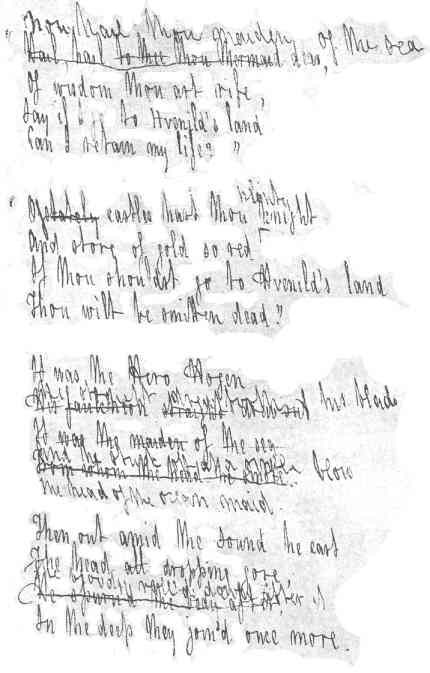 thou maiden of the sea
Hail, hail to thee thou Mermaid dear,
Of wisdom thou art rife,
Say if I go to Hvenild's land
Can I retain my life? "
mighty
" Of stately castles hast thou knight
And store of gold so red
If thou shouldst go to Hvenild's land
Thou wilt be smitten dead."
It was the Hero Hogen
his blade
His faulchion straight
It was the maiden of the sea
And he struck blow
From whom the head he
The head of the ocean maid.
Then out amid the Sound he cast
The head all dropping gore,
The body
He spurned the after it
In the deep they join'd once more.